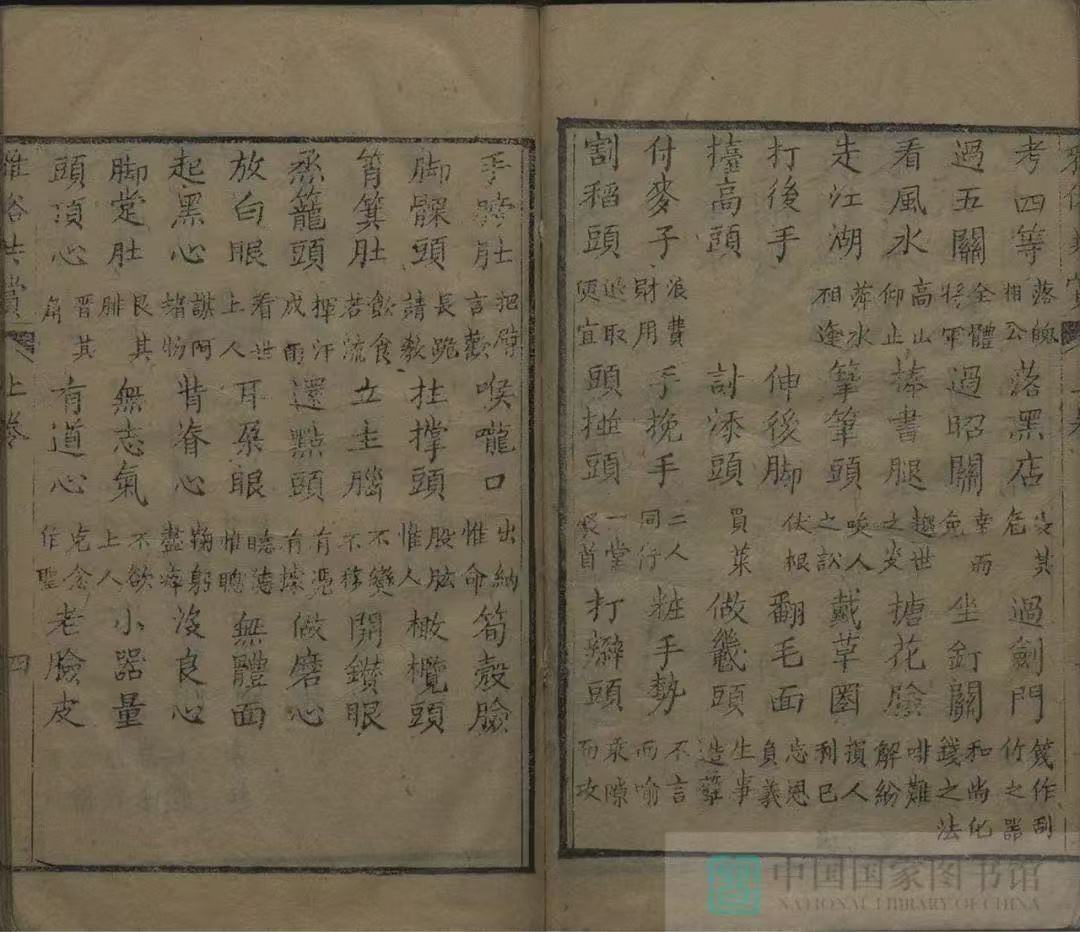 考四等 落魄相公 落黑店 及其危 過劍門 篾作刮竹之器
過五關 全體將軍 過昭關 幸而免 坐釘關 和尚化錢之法
看風水 高山仰止 捧書腿 趨世之炎 搪花臉 啡難解紛
走江湖 萍水相逢 筆頭 喚人之訟 戴草圈 損人利已
打後手 伸後脚 伏根 翻毛面 忘恩負義
擡高頭 討添頭 買菜 做畿頭 生事造孽
付麥子 浪費財用 手挽手 二人同行 粧手勢 不言而喻
割稻頭 取便宜 頭碰頭 一堂 打辮頭 乘隙而攻
手膀肚 把臂言歡 喉嚨口 出納惟命 筍殼臉
脚髁頭 長跪請教 拄撑頭 股肱惟人 橄欖頭
筲箕肚 飲食若流 立主腦 不變不移 開鑚眼
烝籠頭 揮汗成雨 還點頭 有憑有據 做磨心
放白眼 看世上人 耳朶眼 聽德惟聰 無體面
起黑心 諸物 背脊心 鞠躬盡瘁 沒良心
脚肚 艮其腓 無志氣 不欲上人 小器量
頭頂心 晋其角 有道心 克念作聖 老臉皮
雅俗共賞 上卷 四
中国国家图书馆
NATIONAL LIBRARY OF CHINA